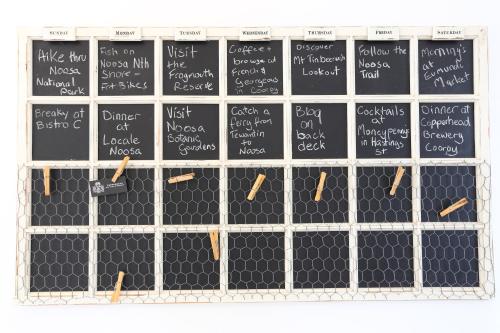 SUNDAY
MONDAY
TUESDAY
WEDNESDAY
THURSDAY
FRIDAY
SATURDAY
Hike thru
Noosa
National
Park
Fish on
Noosa Nth
Shore -
Fat Bikes
Visit
the
Frogmouth
Reserve
Coffee +
browse at
French &
Georgeous
in Cooroy
Discover
Mt Tinbeerwah
Lookout
Follow the
Noosa
Trail
Morning's
at
Eumundi
Market
Breaky at
Bistro C
Dinner
at
Locale
Noosa
Visit
Noosa
Botanic
Gardens
Catch a
ferry from
Tewantin
to
Noosa
BBQ
on
back
deck
Cocktails
at
Moneypenny's
in Hastings
st
Dinner at
Copperhead
Brewery
Cooroy